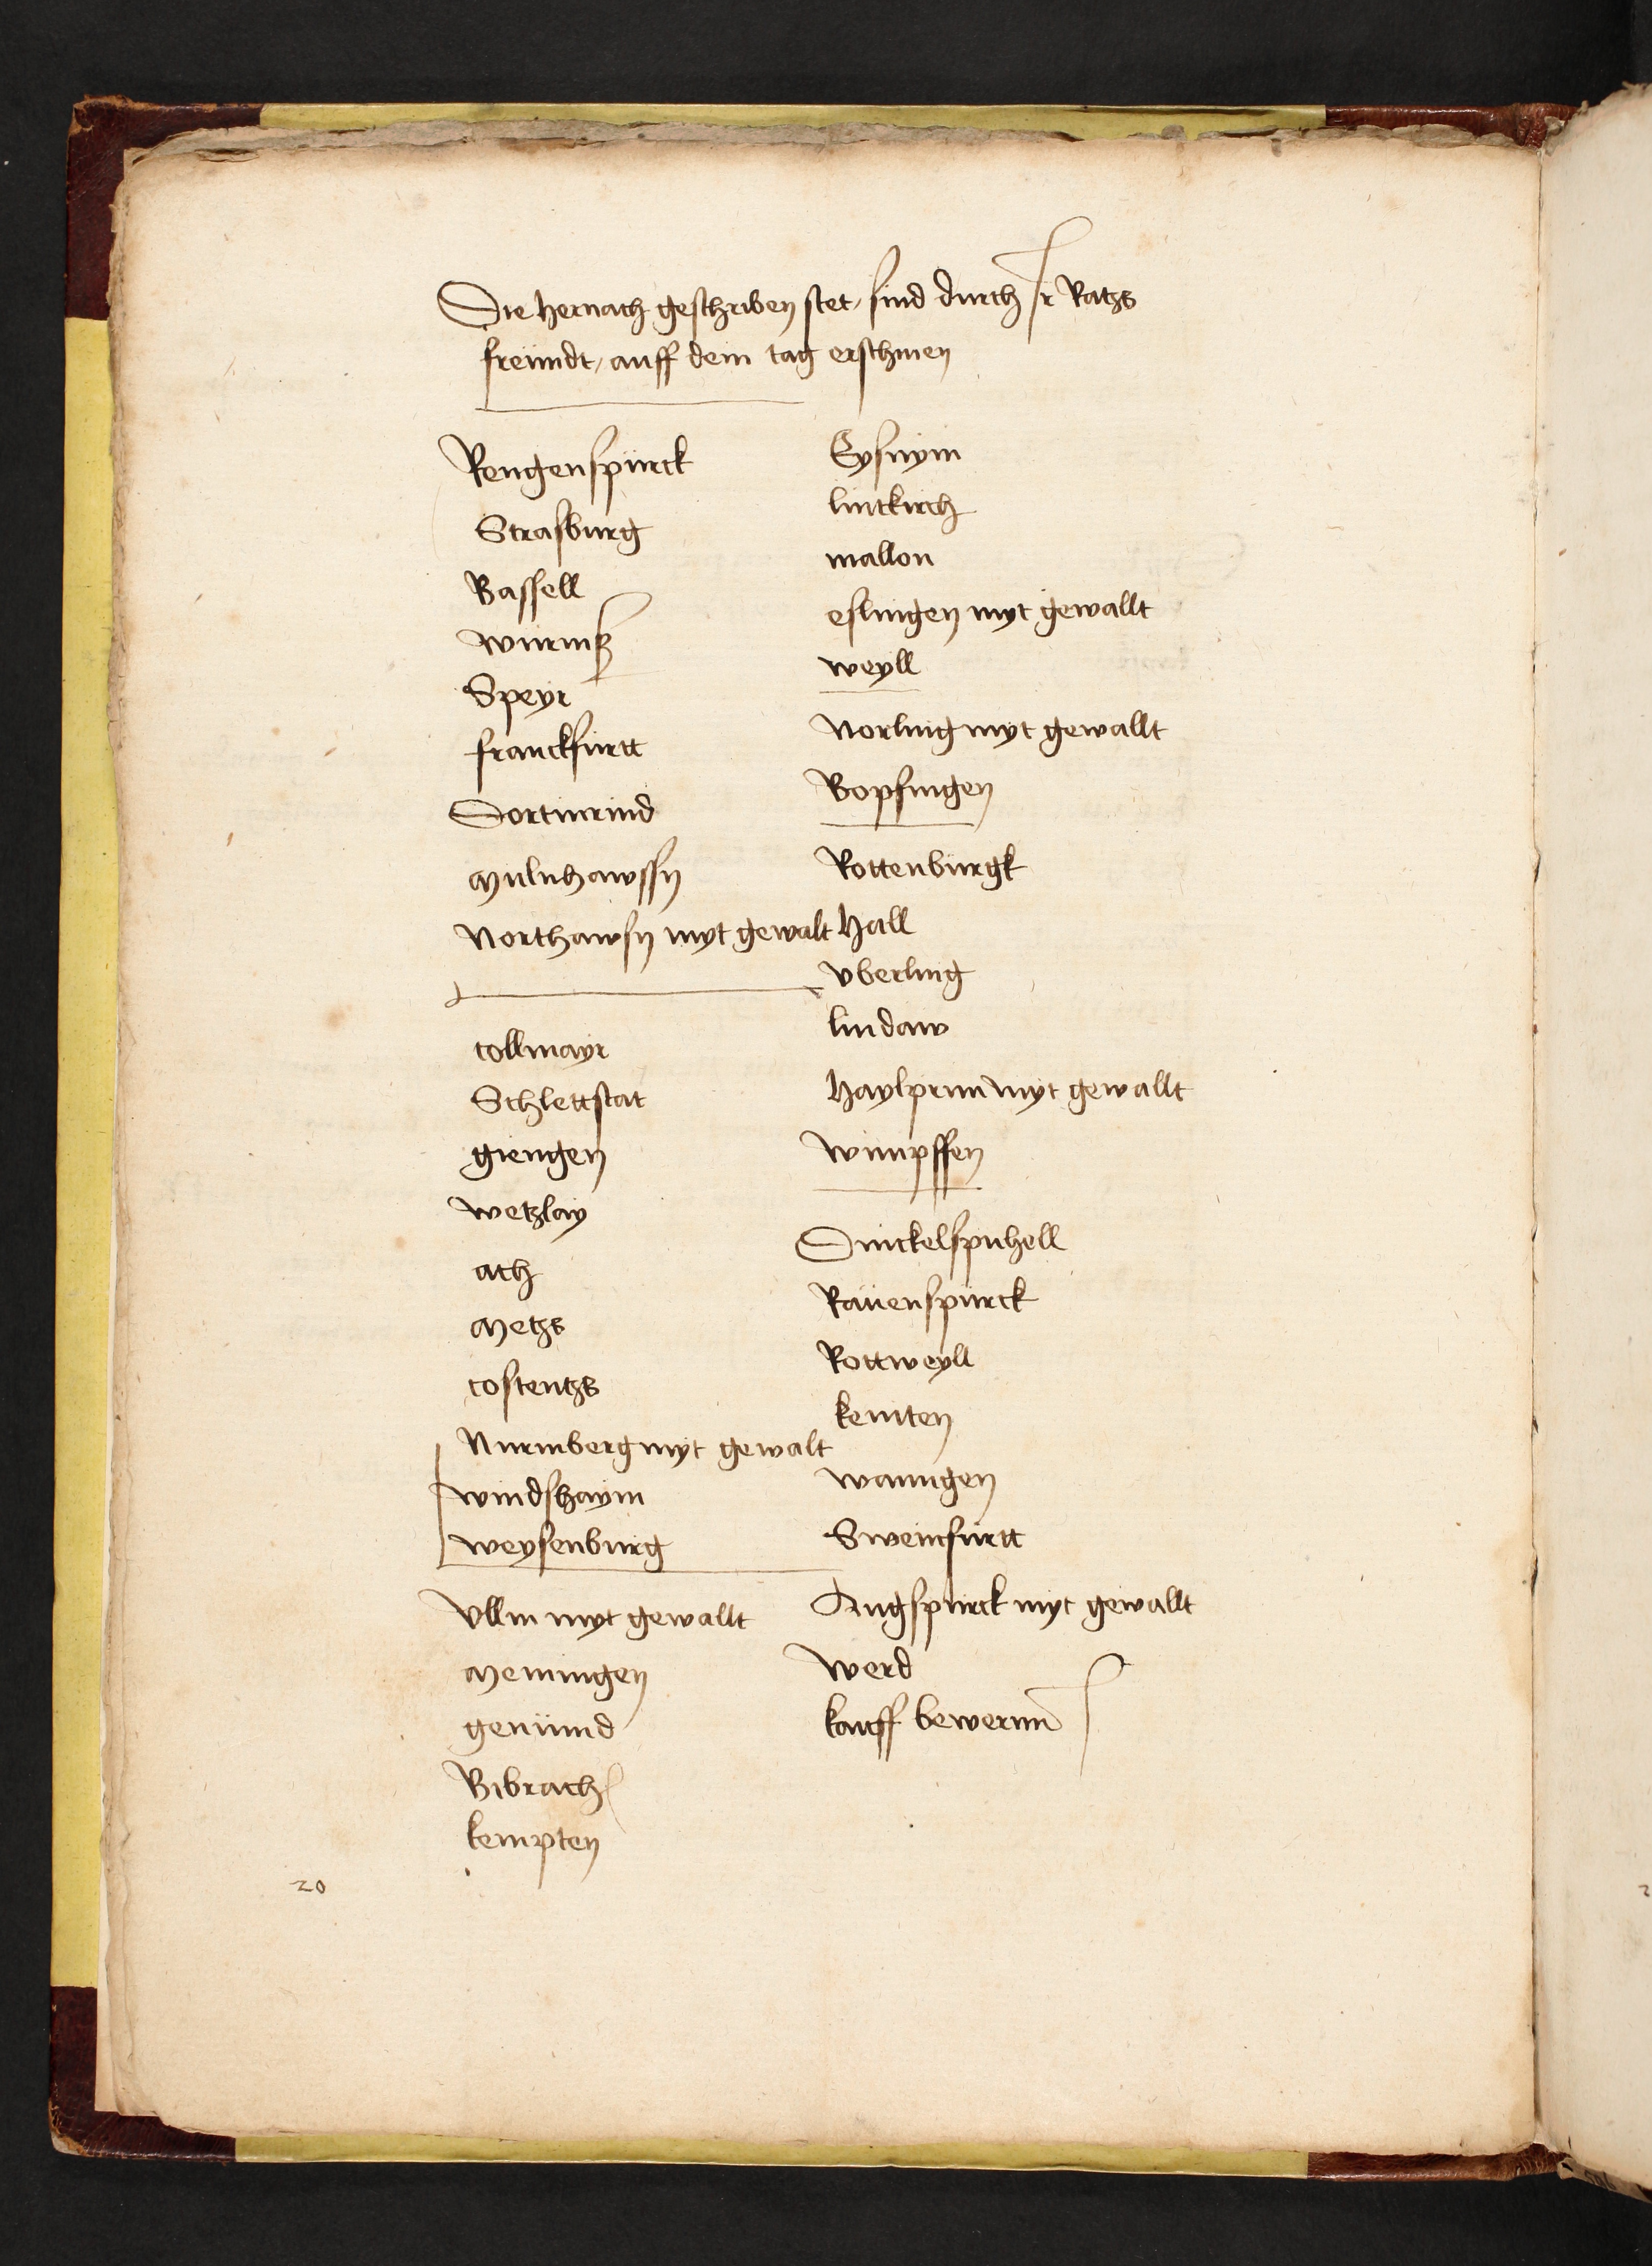 Die hernach geschriben stet, sind durch Ir Ratzs
freündt, auff dem tag erschinen
Rengenspürck
Strasburg
Bassell
würmß
Speyr
franckfürtt
Dortmund
Mulnhawssn
Northawsn myt gewalt
collmayr
Schlettstat
giengen
wetzlay
ach
Metzs
costentzs
Nurmberg myt gewalt
windshaym
weysenbürg
Vllm myt gewallt
Memingen
gemünd
Bibrach
kempten
20
Eysnym
lintkirch
mallon
eslingen myt gewallt
weyll
Norling myt gewallt
Bopfingen
Rottenbürgk
Hall
vberling
lindaw
Haylprun myt gewallt
wimpffen
Dinckelspuhell
Rauenspürck
Rottweyll
kemten
wanngen
Sweinfürtt
Augspürck myt gewallt
werd
kauff bewernn